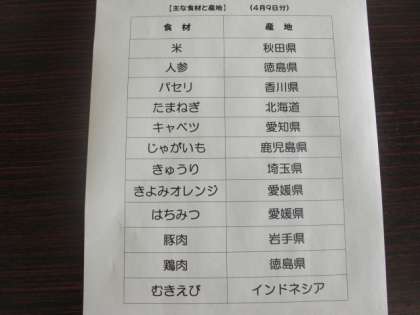 【主な食材と産地】 (4月9日分)
食材 産地
米 秋田県
人参 徳島県
パセリ 香川県
たまねぎ 北海道
キャベツ 愛知県
じゃがいも 鹿児島県
きゅうり 埼玉県
きよみオレンジ 愛媛県
はちみつ 愛媛県
豚肉 岩手県
鶏肉 徳島県
むきえび インドネシア